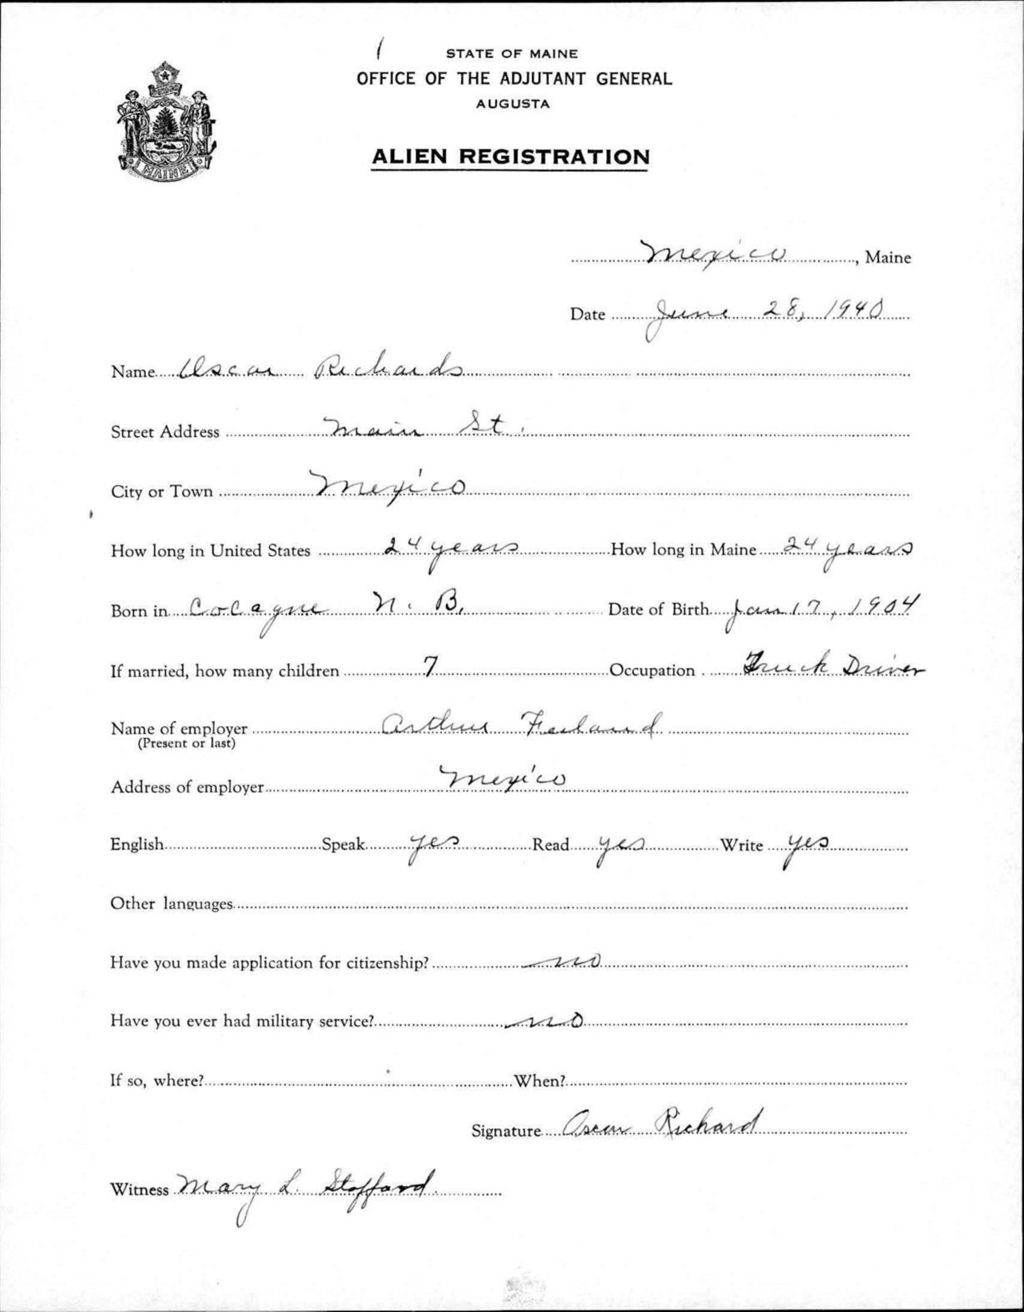 STATE OF MAINE
OFFICE OF THE ADJUTANT GENERAL
AUGUSTA
MAINE
ALIEN REGISTRATION
Mexico, Maine
Date June 28, 1940
Name Oscar Richards
Street Address Main St.
City or Town Mexico
How long in United States 24 years How long in Maine 24 years
Born in Cocagne N. B. Date of Birth Jan 17, 1904
If married, how many children 7 Occupation Truck Driver
Name of employer Arthur
(Present or last)
Address of employer Mexico
English Speak yes Read yes Write yes
Other languages
Have you made application for citizenship? no
Have you ever had military service? no
If so, where? When?
Signature Oscar Richard
Witness Mary L. Stofford